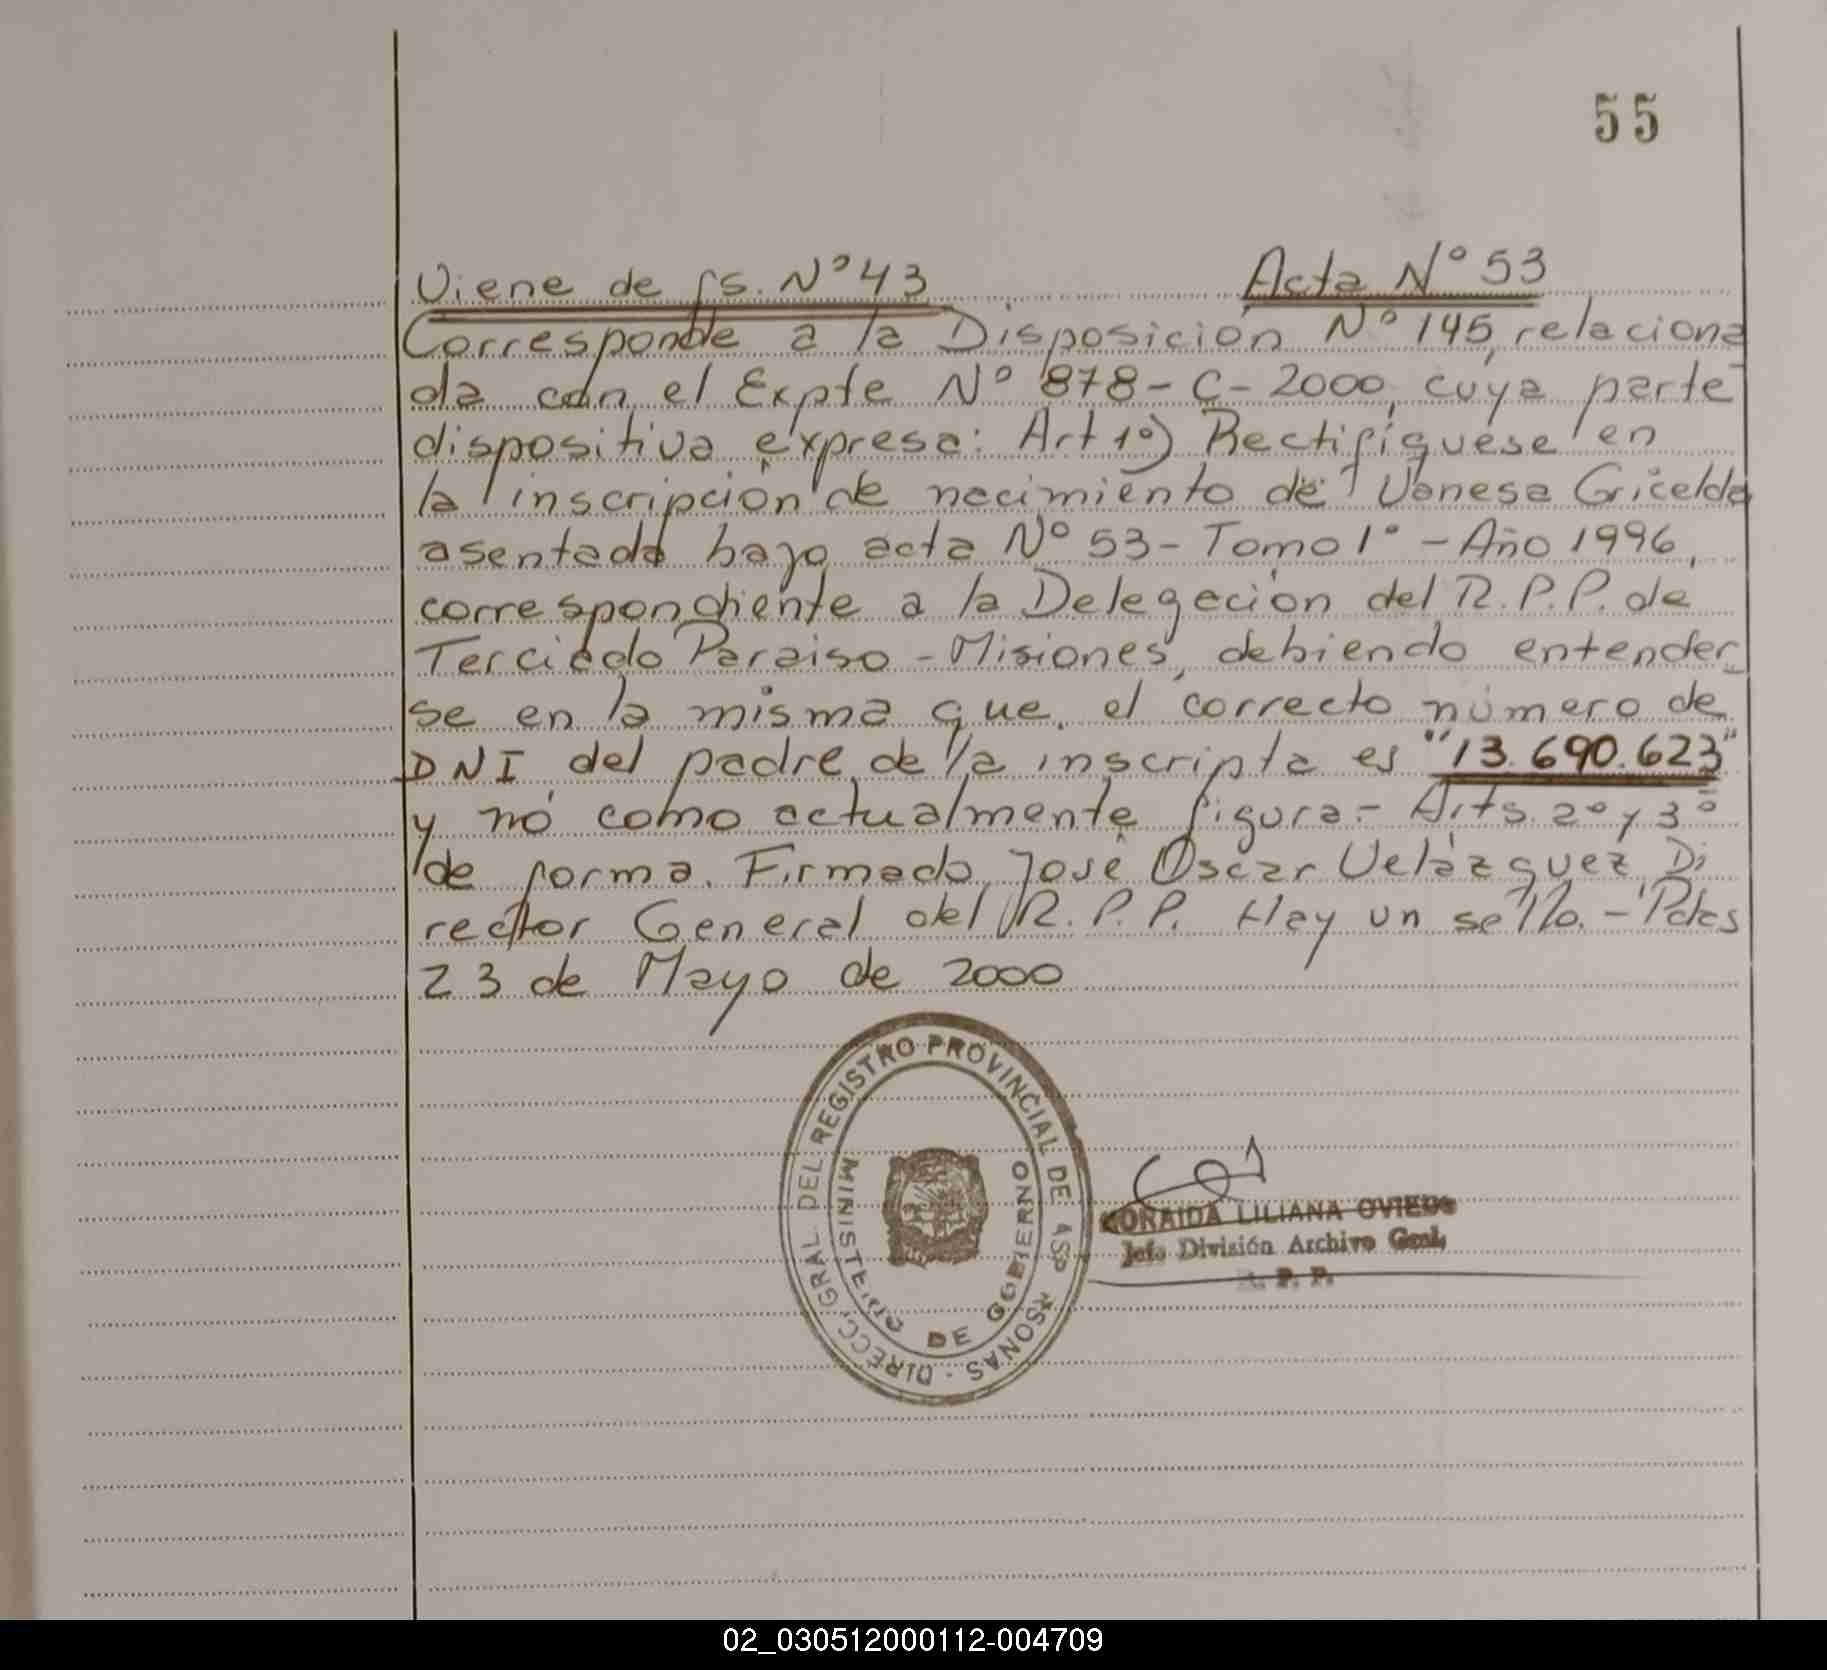 55
Viene de fs. Nº 43 Acta Nº 53
Corresponde a la Disposición Nº 145, relaciona
da con el Expte Nº 878-C-2000, cuya parte
dispositiva expresa: Art 1º) Rectifíquese en
la inscripción de nacimiento de Vanesa Gricelda
asentada bajo acta Nº 53-Tomo 1º-Año 1996,
correspondiente a la Delegación del R.P.P. de
Terciado Paraiso-Misiones, debiendo entender
se en la misma que el correcto número de
DNI del padre de la inscripta es "13.690.623"
y nó como actualmente figura.- Arts. 2º y 3º
de forma. Firmado José Oscar Velázquez Di
rector General del R.P.P. Hay un sello.- Pdas
23 de Mayo de 2000
DIRECC. GRAL. DEL REGISTRO PROVINCIAL DE LAS PERSONAS -
MINISTERIO DE GOBIERNO
LILIANA OVIEDO
Jefe División Archivo Gral.
R. P. P.
02_030512000112-004709